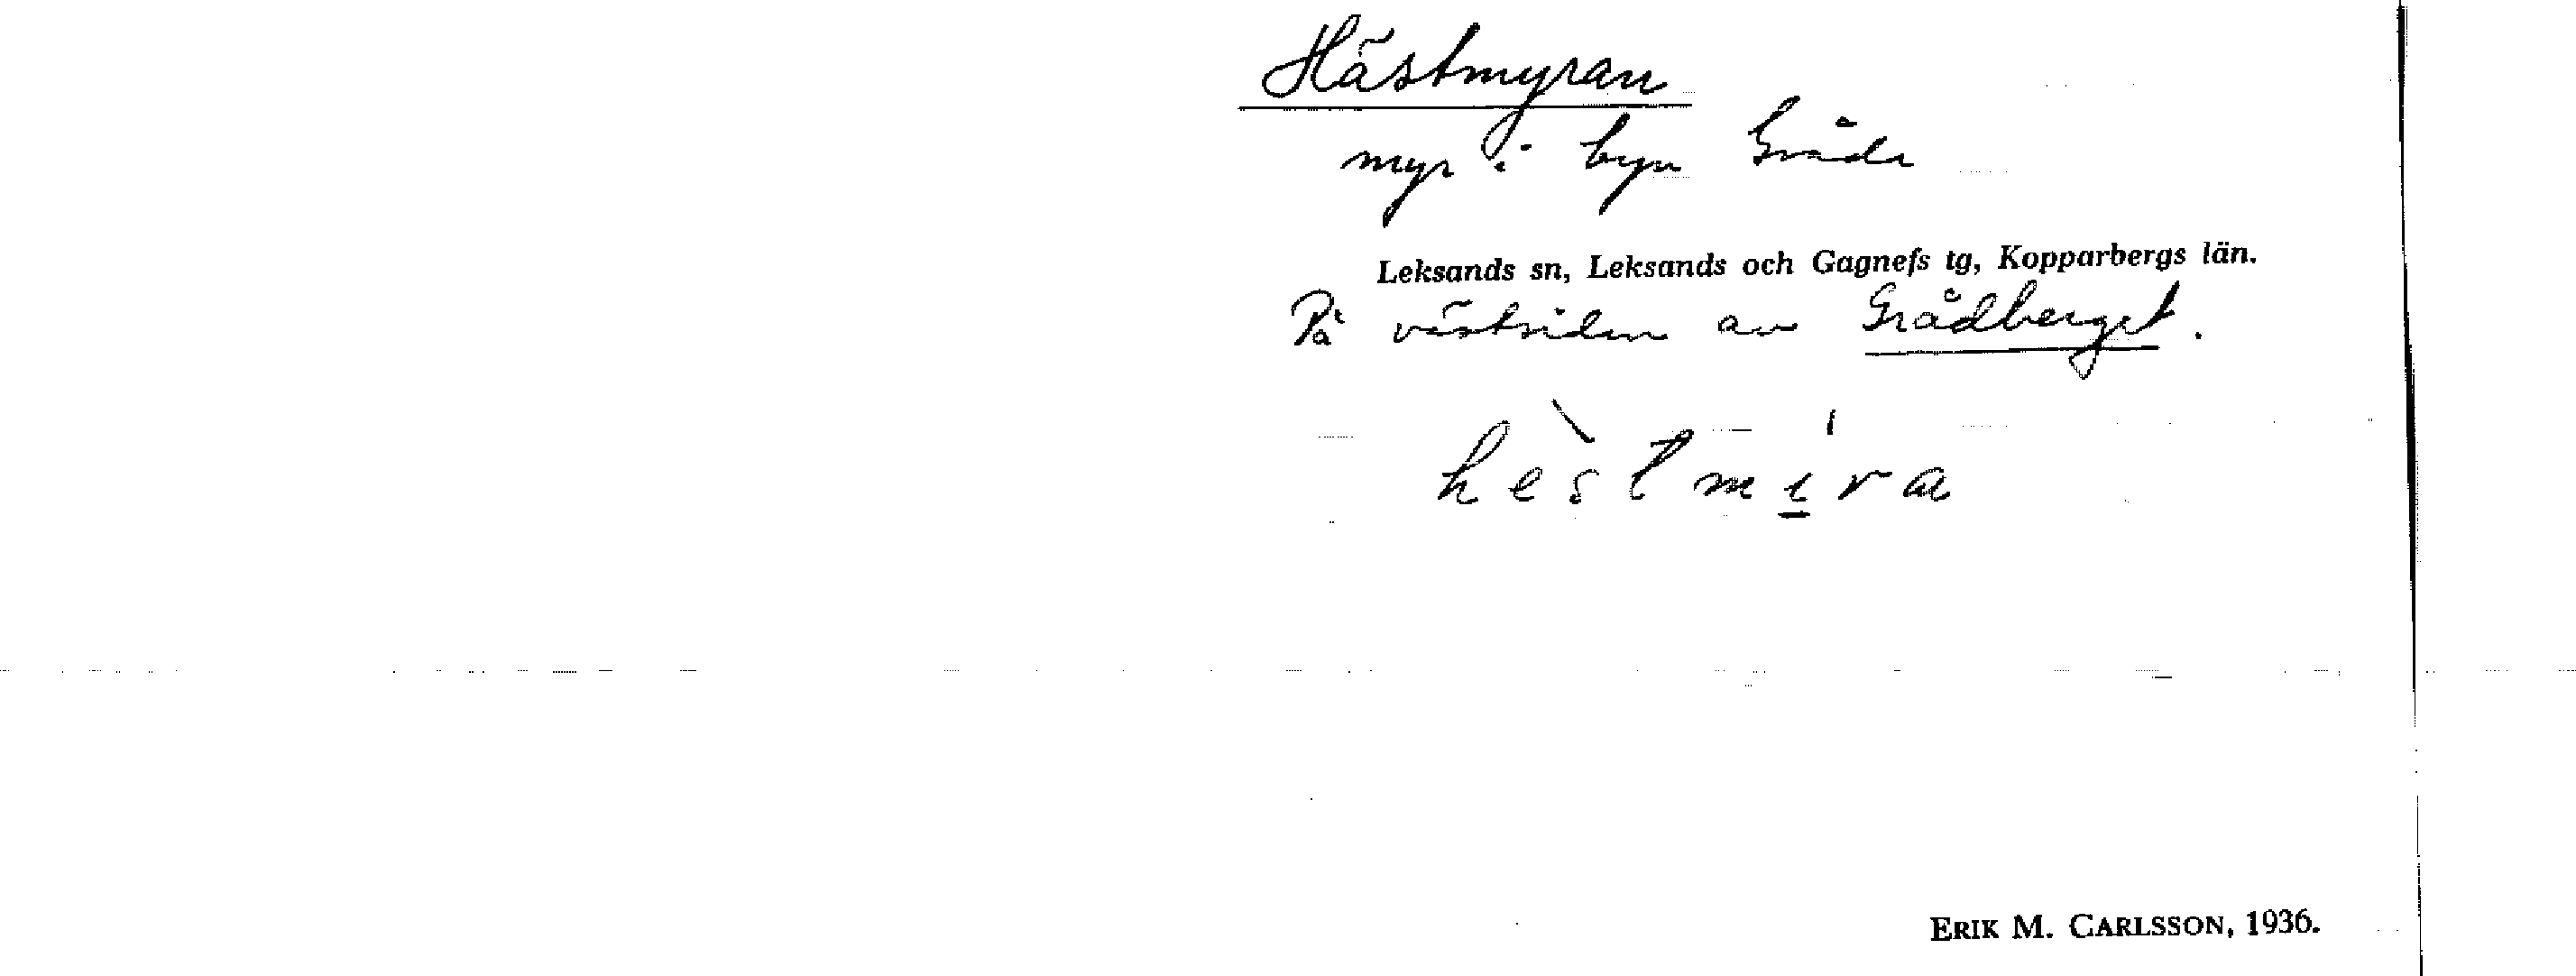 Hästmyran
myr i byn Gråda
Leksands sn, Leksands och Gagnefs tg, Kopparbergs län.
På västsidan av Grådberget.
hèstmíra
ERIK M. CARLSSON, 1936.